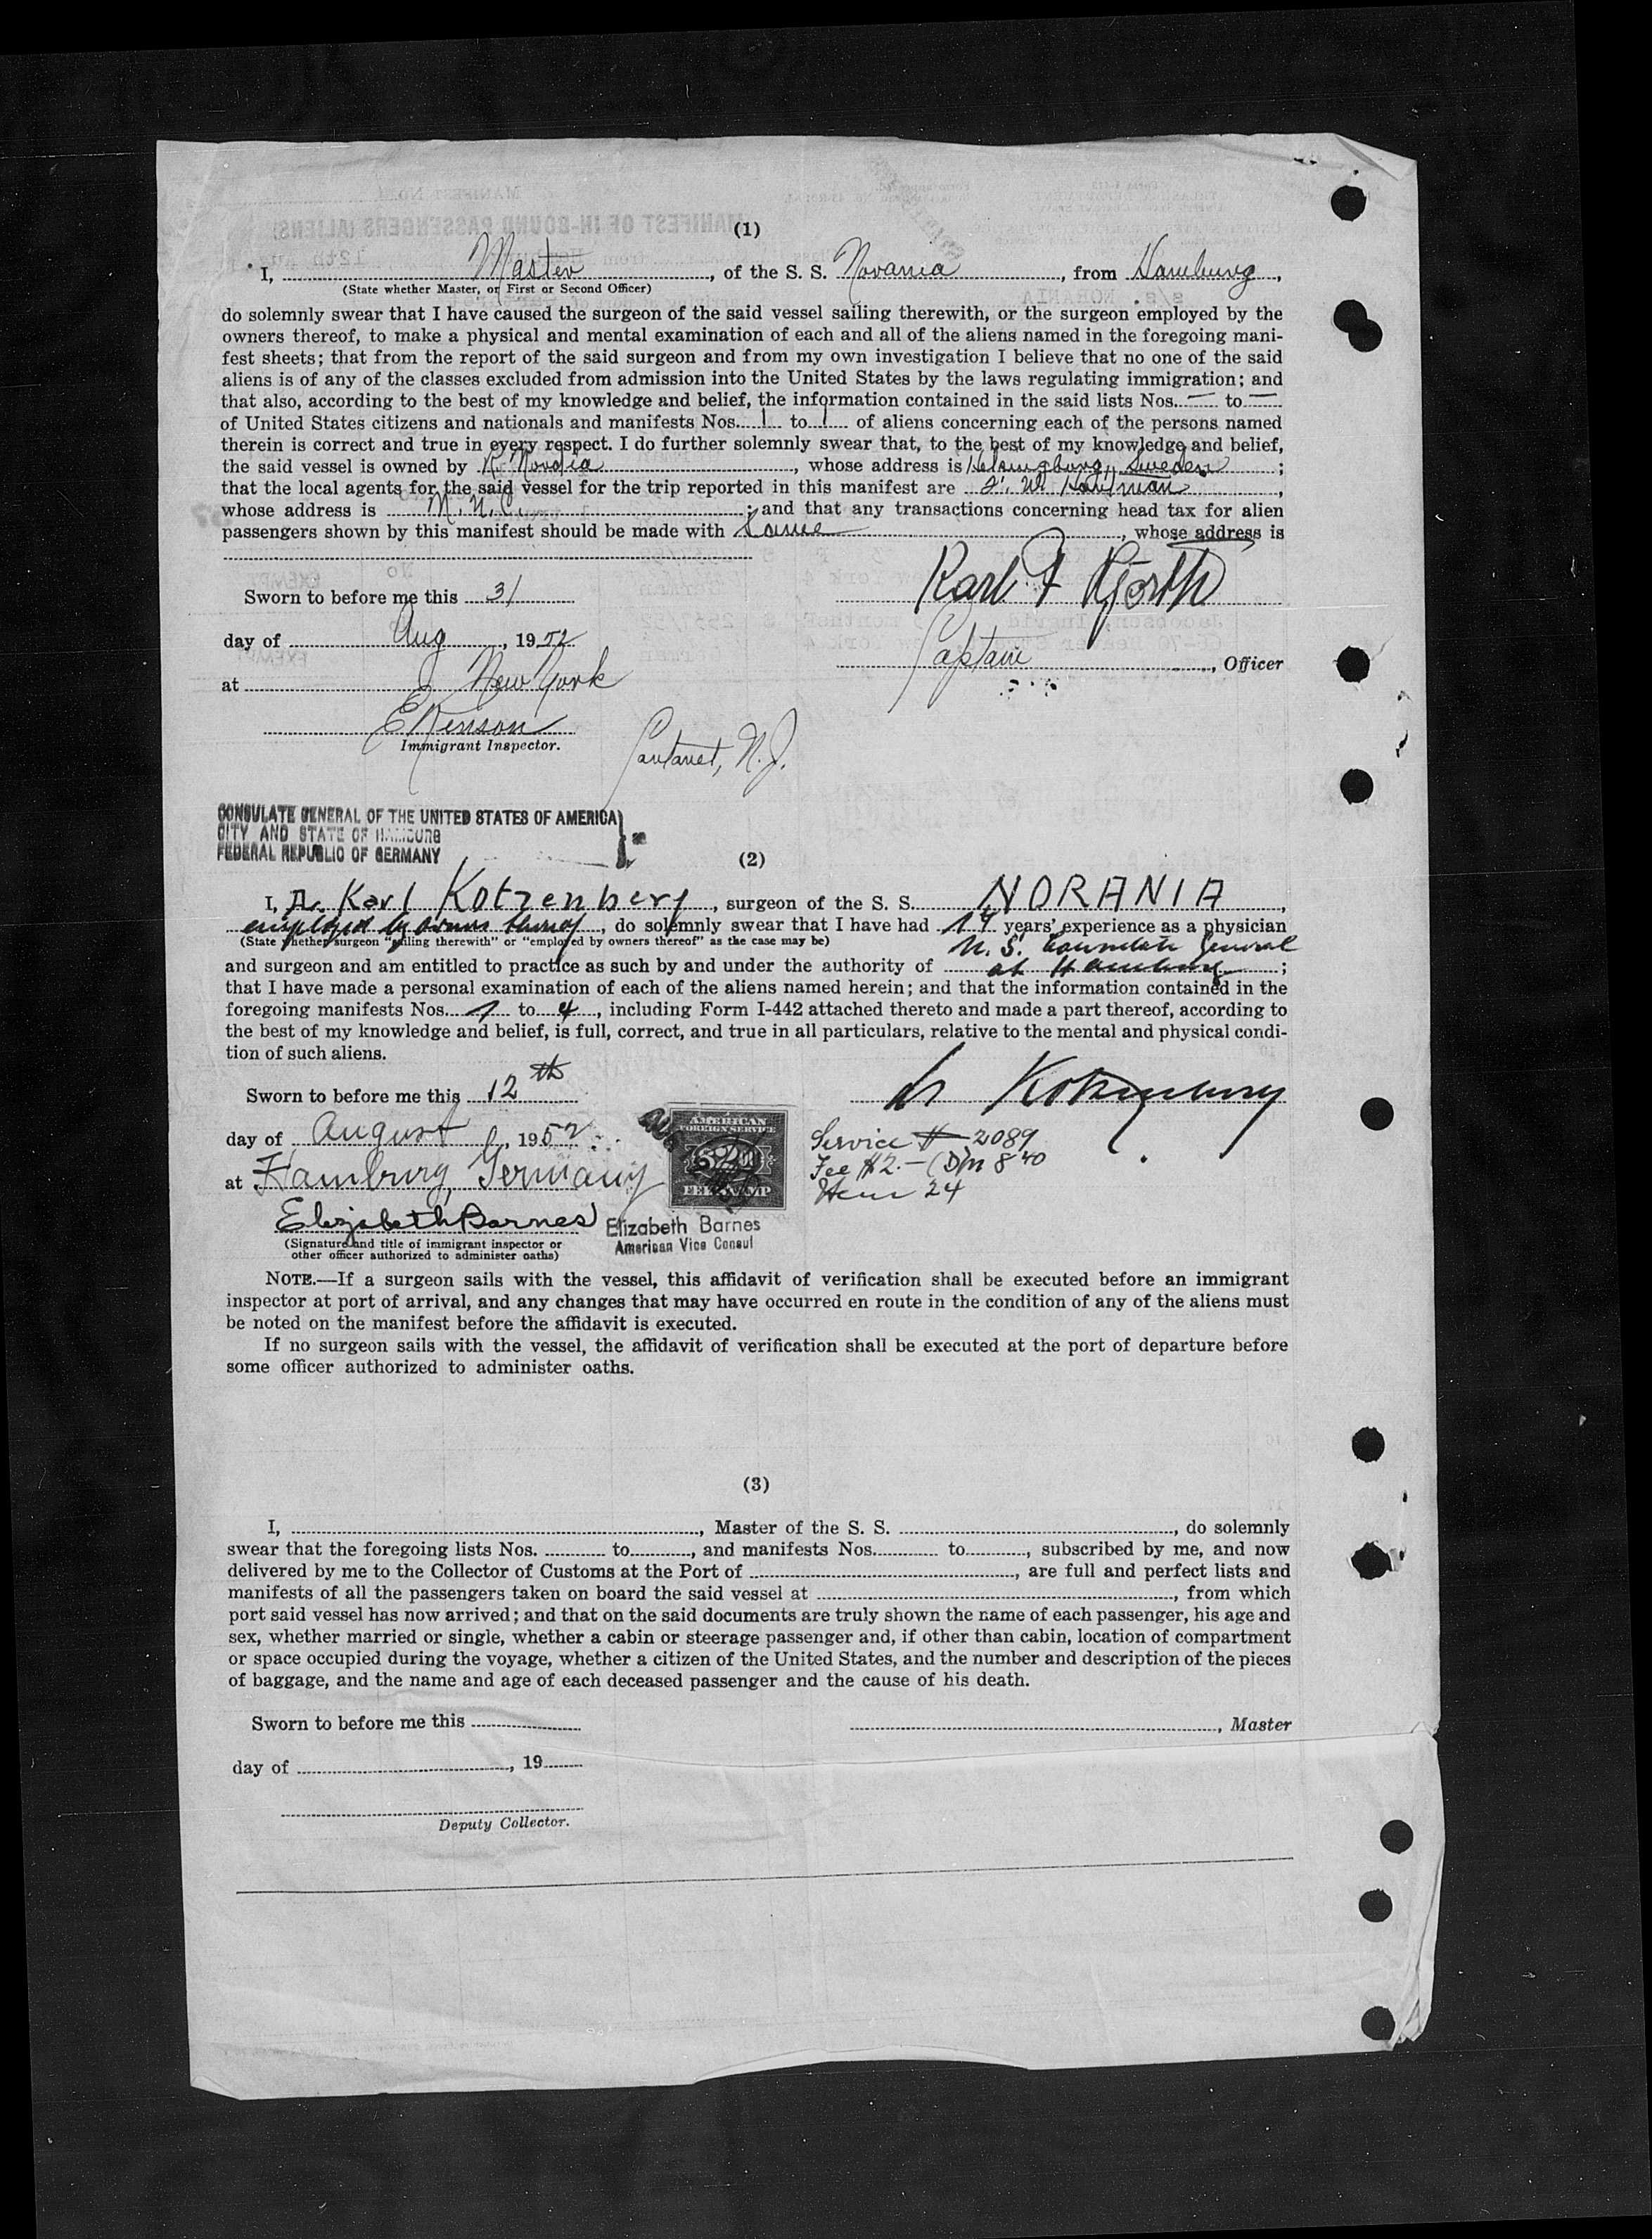 (1)
I, Master, of the S. S. Norania, from Hamburg,
(State whether Master, or First or Second Officer)
do solemnly swear that I have caused the surgeon of the said vessel sailing therewith, or the surgeon employed by the
owners thereof, to make a physical and mental examination of each and all of the aliens named in the foregoing mani-
fest sheets; that from the report of the said surgeon and from my own investigation I believe that no one of the said
aliens is of any of the classes excluded from admission into the United States by the laws regulating immigration; and
that also, according to the best of my knowledge and belief, the information contained in the said lists Nos. — to —
of United States citizens and nationals and manifests Nos. 1 to 1 of aliens concerning each of the persons named
therein is correct and true in every respect. I do further solemnly swear that, to the best of my knowledge and belief,
the said vessel is owned by R., whose address is Sweden;
that the local agents for the said vessel for the trip reported in this manifest are,
whose address is; and that any transactions concerning head tax for alien
passengers shown by this manifest should be made with Same, whose address is
Karl F Hjorth
Sworn to before me this 31
day of Aug, 1952
Captain, Officer
at New York
Immigrant Inspector.
N.J.
CONSULATE GENERAL OF THE UNITED STATES OF AMERICA
CITY AND STATE OF HAMBURG
FEDERAL REPUBLIC OF GERMANY
(2)
I, Dr. Karl Kotzenberg, surgeon of the S. S. NORANIA,
employed by owners thereof, do solemnly swear that I have had 14 years' experience as a physician
(State whether surgeon "sailing therewith" or "employed by owners thereof" as the case may be)
U.S. Consulate General
and surgeon and am entitled to practice as such by and under the authority of at Hamburg;
that I have made a personal examination of each of the aliens named herein; and that the information contained in the
foregoing manifests Nos. 1 to 4, including Form I-442 attached thereto and made a part thereof, according to
the best of my knowledge and belief, is full, correct, and true in all particulars, relative to the mental and physical condi-
tion of such aliens.
Dr Kotzenberg
Sworn to before me this 12th
day of August, 1952
at Hamburg, Germany
AMERICAN
FOREIGN SERVICE
$2
FEE STAMP
Service # 2089
Fee $2.— (DM 8.40
Item 24
Elizabeth Barnes
Elizabeth Barnes
American Vice Consul
(Signature and title of immigrant inspector or
other officer authorized to administer oaths)
NOTE.—If a surgeon sails with the vessel, this affidavit of verification shall be executed before an immigrant
inspector at port of arrival, and any changes that may have occurred en route in the condition of any of the aliens must
be noted on the manifest before the affidavit is executed.
If no surgeon sails with the vessel, the affidavit of verification shall be executed at the port of departure before
some officer authorized to administer oaths.
(3)
I, , Master of the S. S. , do solemnly
swear that the foregoing lists Nos. to , and manifests Nos. to , subscribed by me, and now
delivered by me to the Collector of Customs at the Port of , are full and perfect lists and
manifests of all the passengers taken on board the said vessel at , from which
port said vessel has now arrived; and that on the said documents are truly shown the name of each passenger, his age and
sex, whether married or single, whether a cabin or steerage passenger and, if other than cabin, location of compartment
or space occupied during the voyage, whether a citizen of the United States, and the number and description of the pieces
of baggage, and the name and age of each deceased passenger and the cause of his death.
Sworn to before me this
, Master
day of , 19
Deputy Collector.